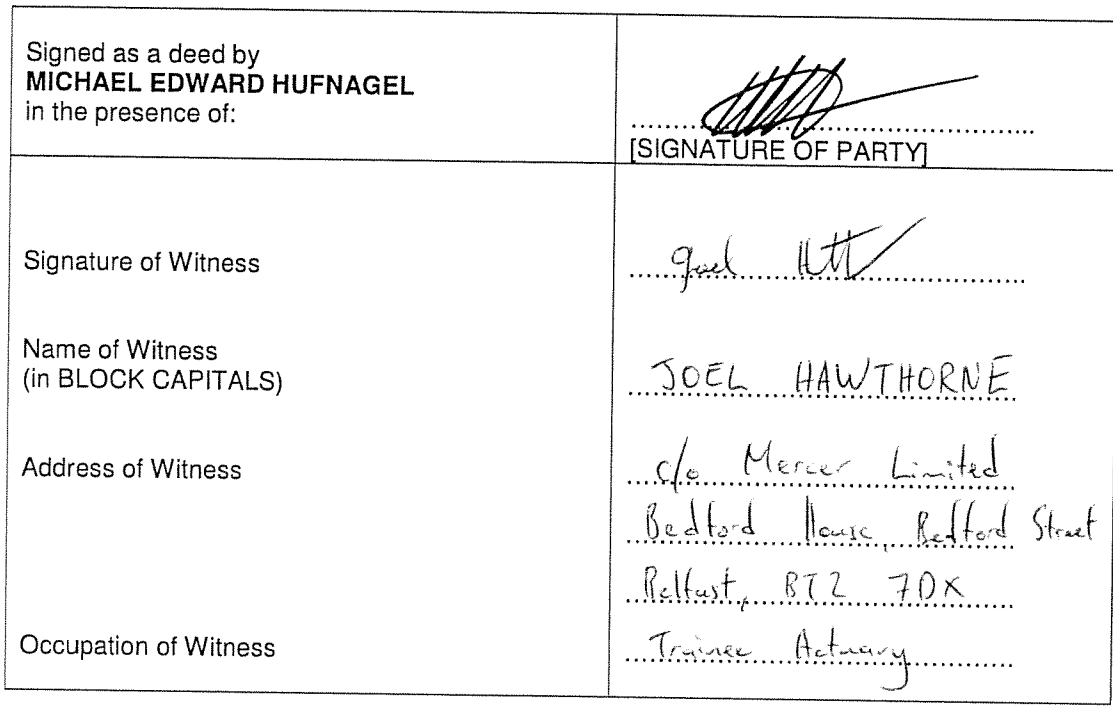 Signed as a deed by
MICHAEL EDWARD HUFNAGEL
in the presence of:
[SIGNATURE OF PARTY]
Signature of Witness
Joel
Name of Witness
(in BLOCK CAPITALS)
JOEL HAWTHORNE
Address of Witness
c/o Mercer Limited
Bedford House, Bedford Street
Belfast, BT2 7DX
Occupation of Witness
Trainee Actuary